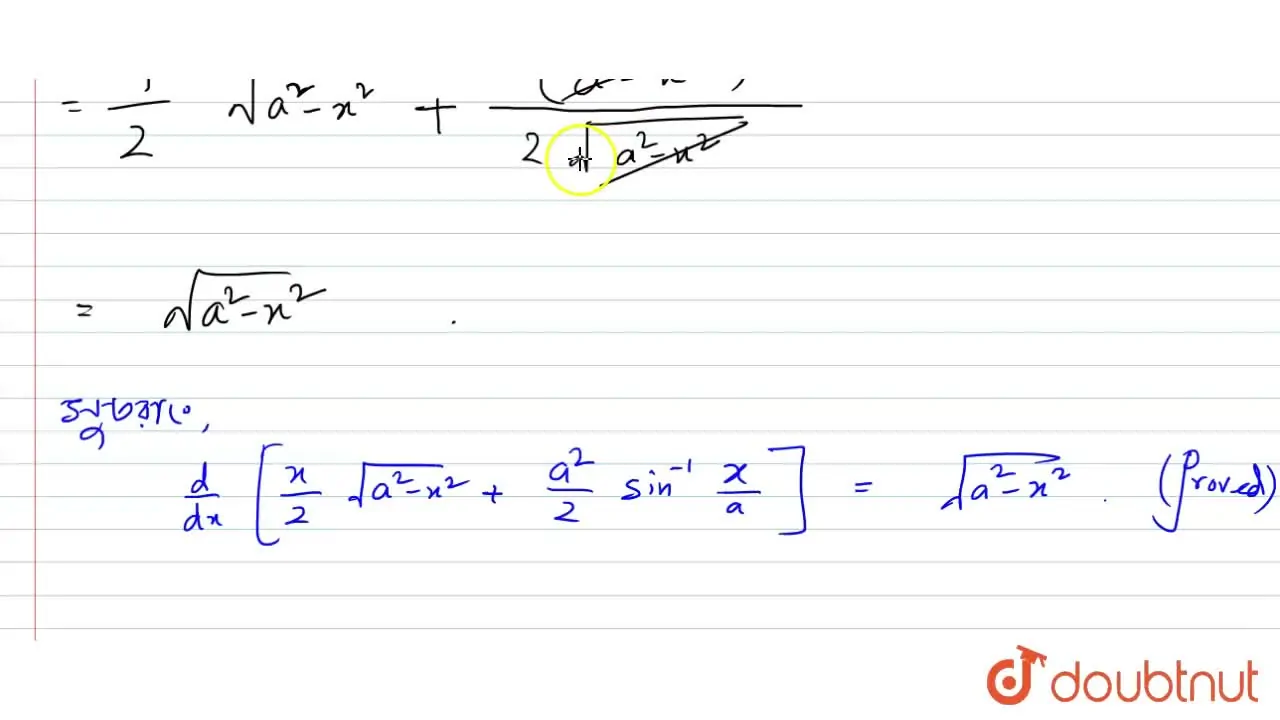 = 1/2 √a²-x² + (a²-x²) / 2√a²-x²
= √a²-x² .
সুতরাং,
d/dx [ x/2 √a²-x² + a²/2 sin⁻¹ x/a ] = √a²-x² . (Proved)
doubtnut